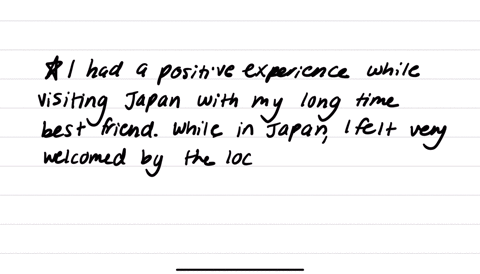 ☆I had a positive experience while
visiting Japan with my long time
best friend. While in Japan, I felt very
welcomed by the loc